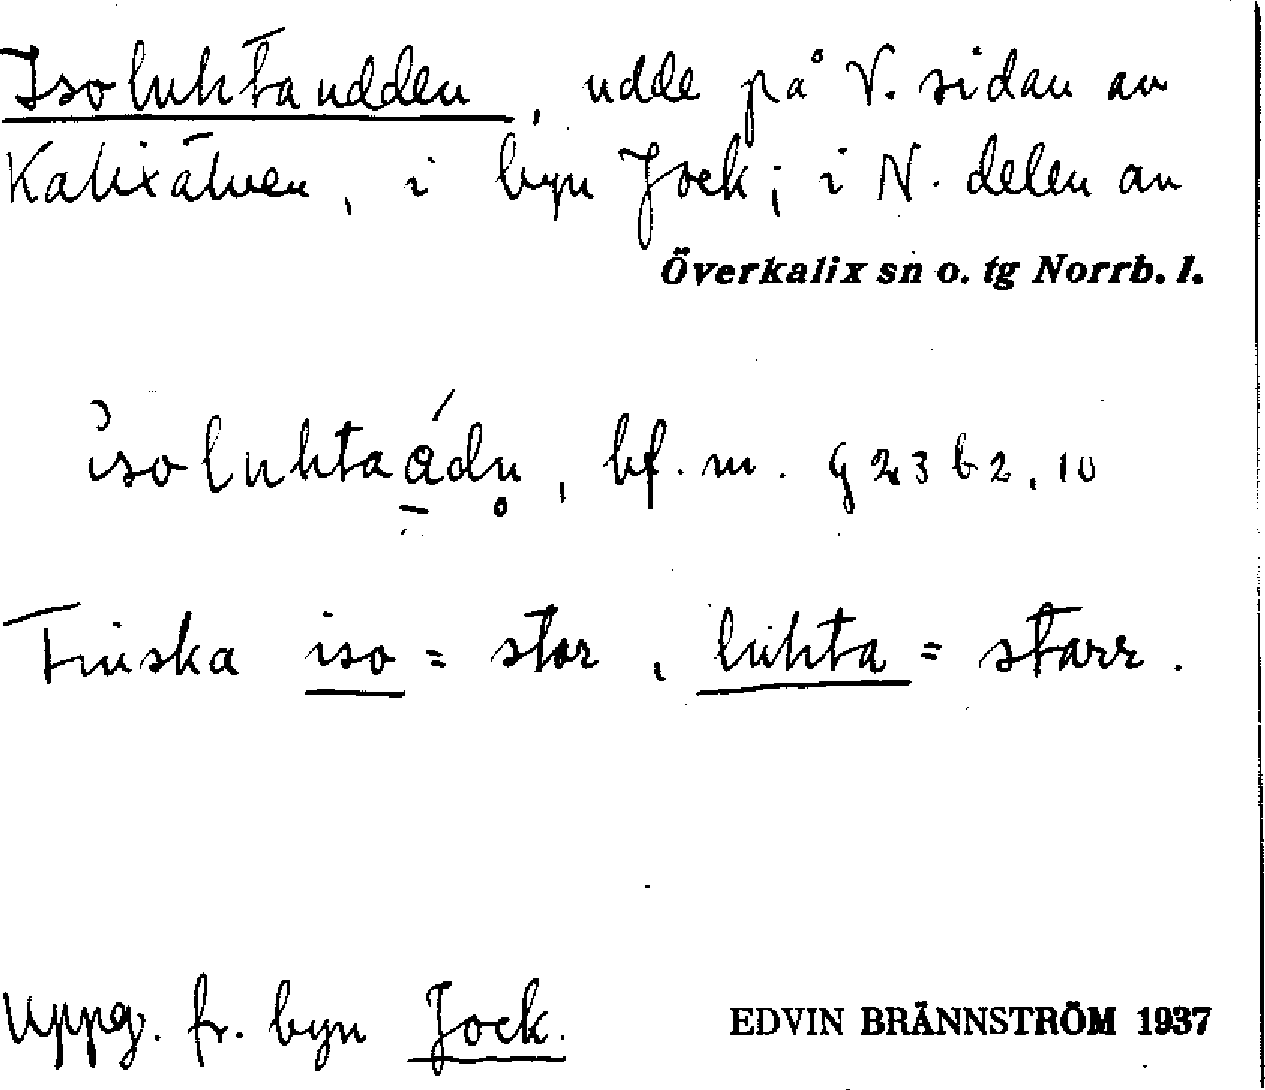 Isoluhtaudden, udde på V. sidan av
Kalixälven, i byn Jock; i N. delen av
Överkalix sn o. tg Norrb. l.
isoluhtaádn̥, bf. m. G 23 b 2, 10
Finska iso = stor, luhta = starr.
Uppg. fr. byn Jock.
EDVIN BRÄNNSTRÖM 1937